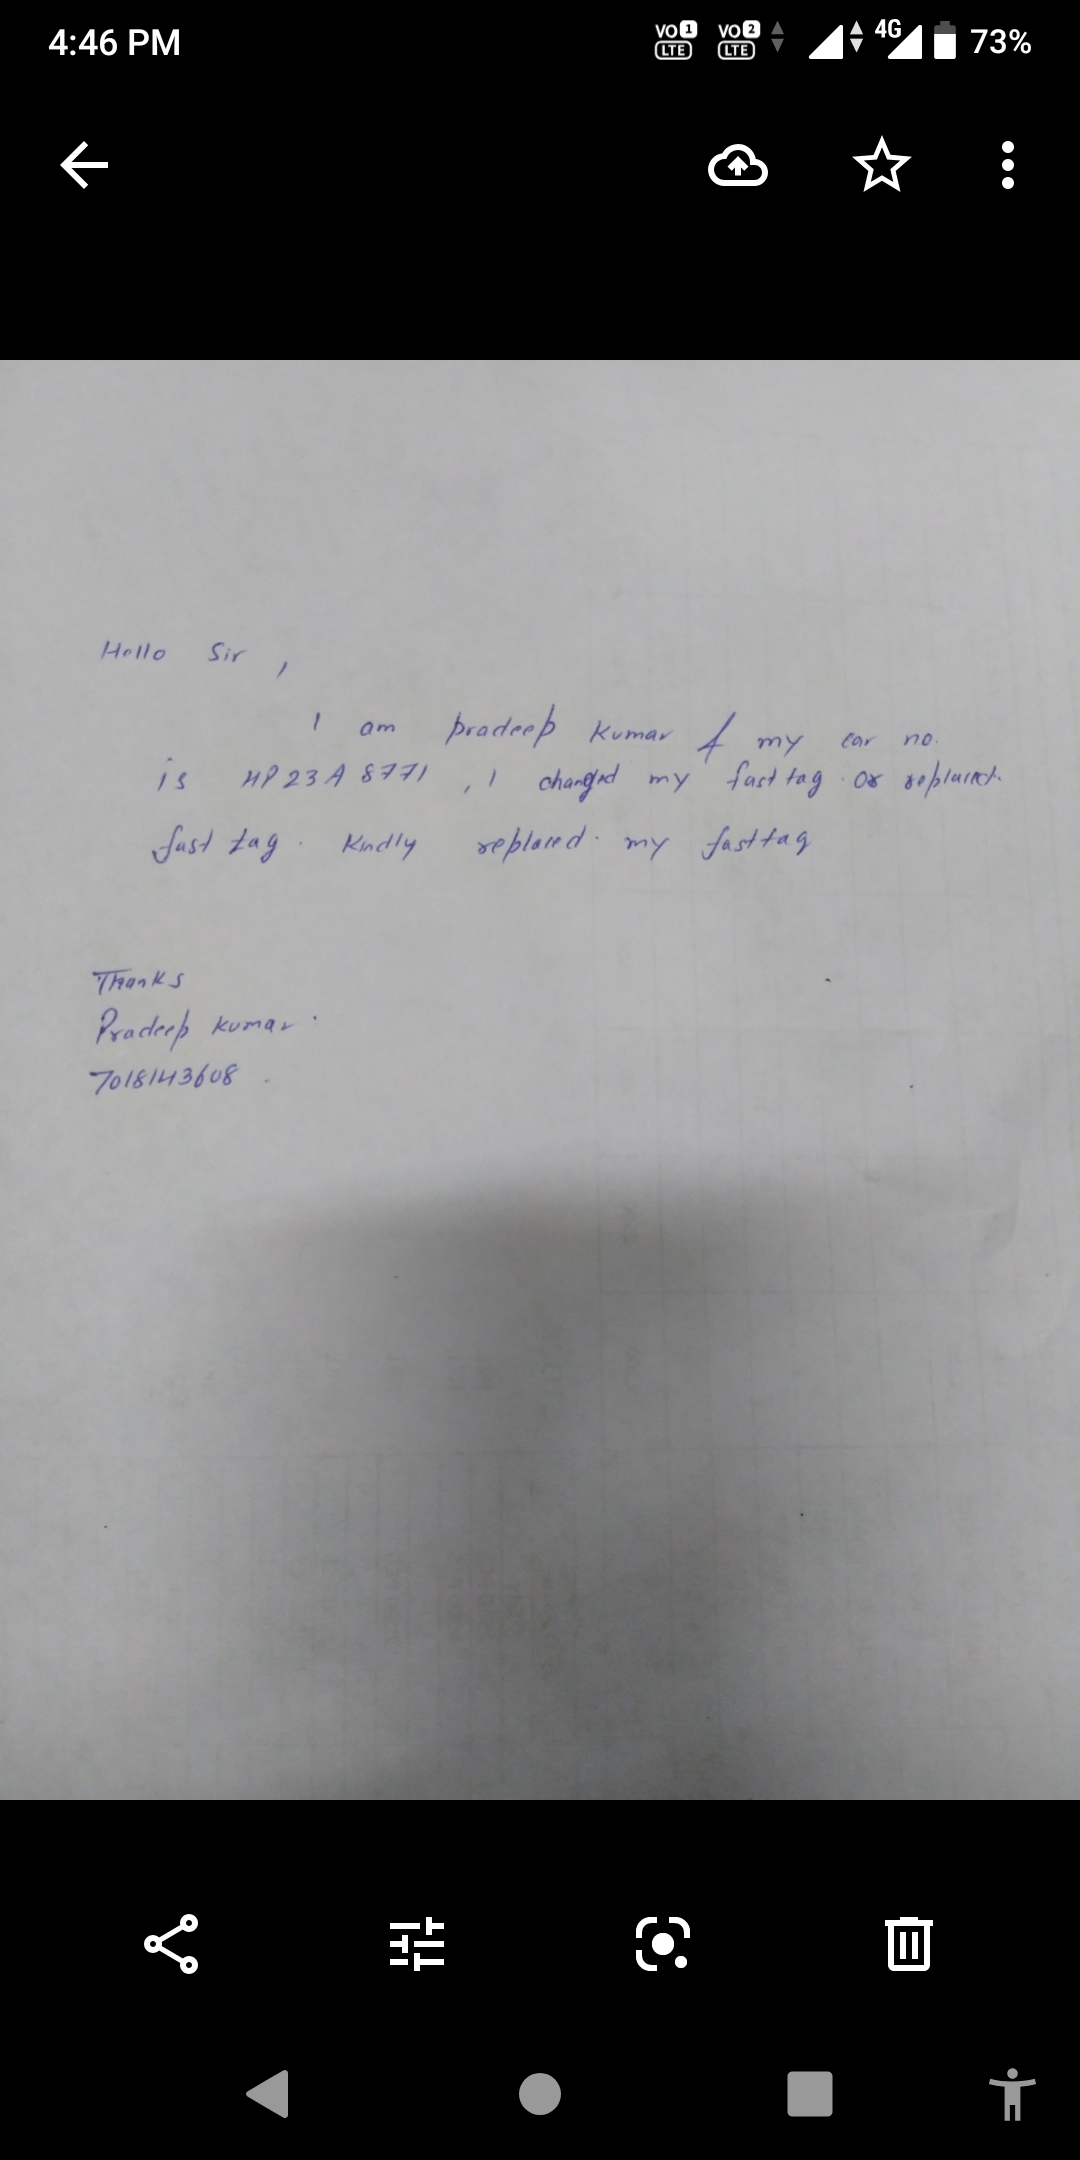 4:46 PM
VO 1 LTE VO 2 LTE 4G 73%
Hello Sir ,
I am pradeep kumar & my car no.
is HP23A 8771 , I changed my fast tag or replaced.
fast tag. Kindly replaced my fasttag
Thanks
Pradeep kumar.
7018143608